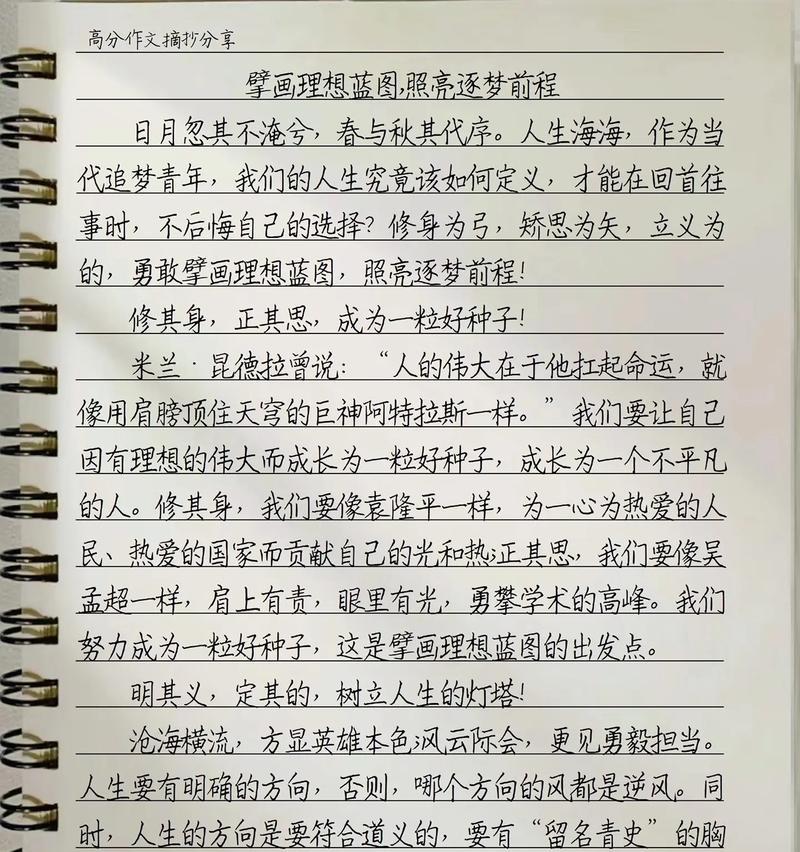 高分作文摘抄分享
擘画理想蓝图,照亮逐梦前程
日月忽其不淹兮，春与秋其代序。人生海海，作为当
代追梦青年，我们的人生究竟该如何定义，才能在回首往
事时，不后悔自己的选择？修身为弓，矫思为矢，立义为
的，勇敢擘画理想蓝图，照亮逐梦前程！
修其身，正其思，成为一粒好种子！
米兰·昆德拉曾说：“人的伟大在于他扛起命运，就
像用肩膀顶住天穹的巨神阿特拉斯一样。”我们要让自己
因有理想的伟大而成长为一粒好种子，成长为一个不平凡
的人。修其身，我们要像袁隆平一样，为一心为热爱的人
民、热爱的国家而贡献自己的光和热;正其思，我们要像吴
孟超一样，肩上有责，眼里有光，勇攀学术的高峰。我们
努力成为一粒好种子，这是擘画理想蓝图的出发点。
明其义，定其的，树立人生的灯塔！
沧海横流，方显英雄本色;风云际会，更见勇毅担当。
人生要有明确的方向，否则，哪个方向的风都是逆风。同
时，人生的方向是要符合道义的，要有“留名青史”的胸